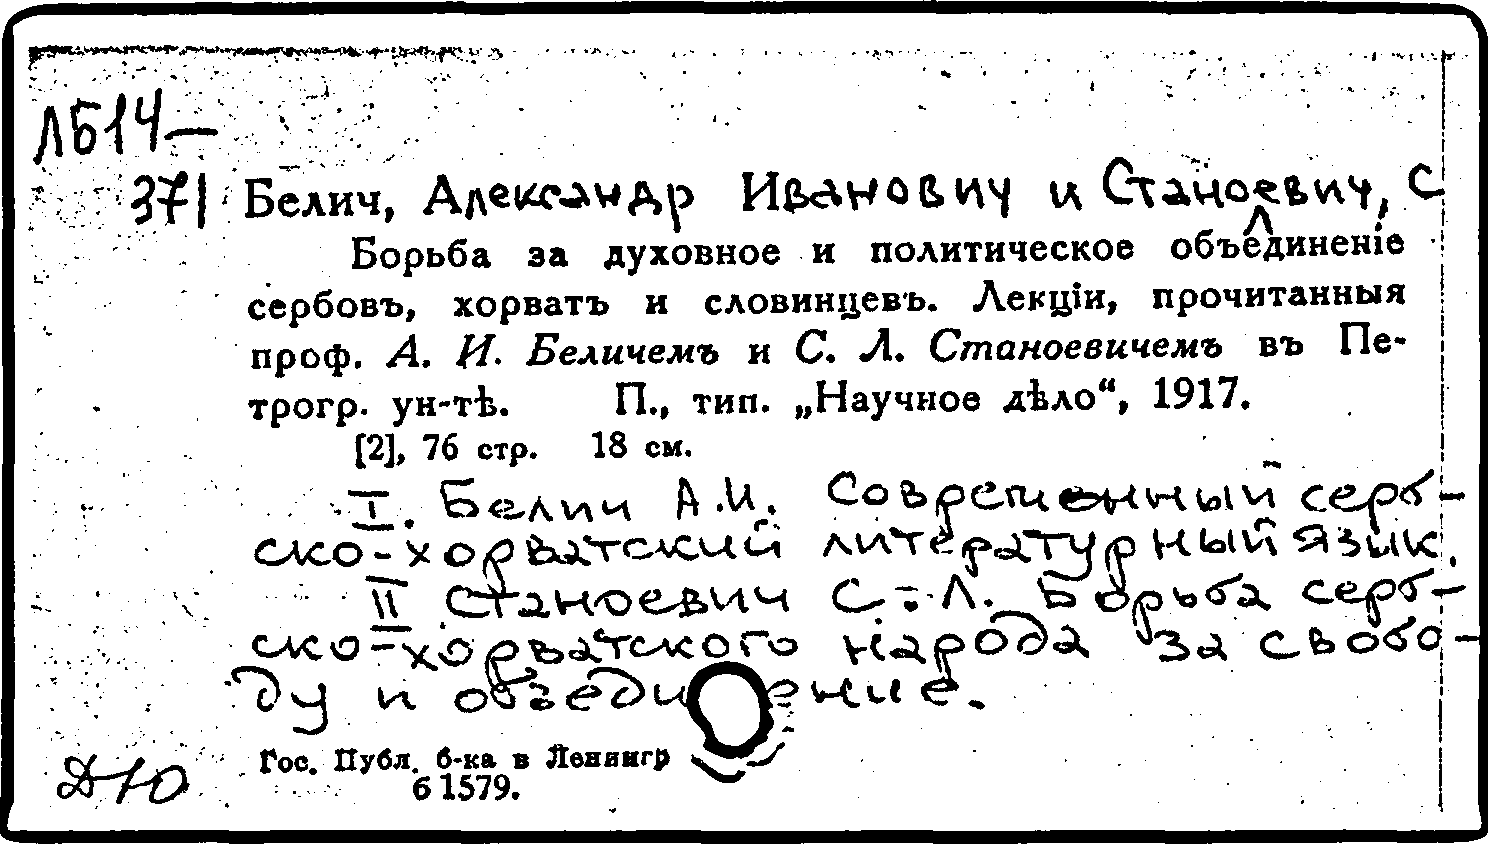 ЛБ14-
371 Белич, Александр Иванович и Станоевич, С
Борьба за духовное и политическое объединенiе
сербовъ, хорватъ и словинцевъ. Лекцiи, прочитанныя
проф. А. И. Беличемъ и С. Л. Станоевичемъ въ Пе-
трогр. ун-тѣ. П., тип. „Научное дѣло“, 1917.
[2], 76 стр. 18 см.
I. Белич А.И. Современный серб-
ско-хорватский литературный язык.
II Станоевич С. Л. Борьба серб-
ско-хорватского народа за свобо-
ду и объединение.
Гос. Публ. б-ка в Ленингр
б 1579.